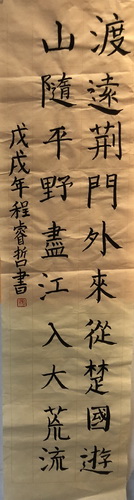 渡遠荆門外來從楚國遊
山隨平野盡江入大荒流
戊戌年程睿哲書